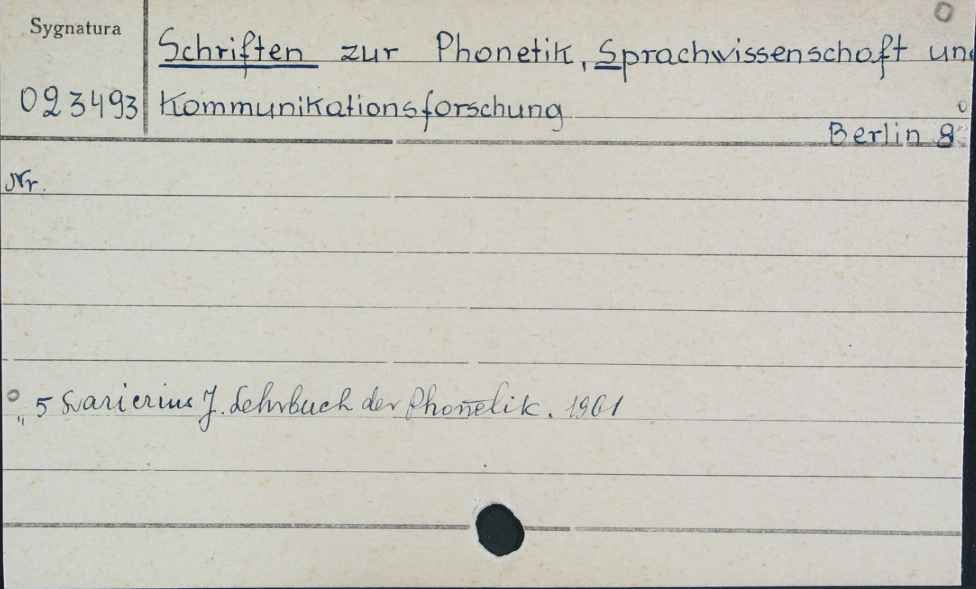 Sygnatura
Schriften zur Phonetik, Sprachwissenschaft un
023493 Kommunikationsforschung
Berlin 8°
Nr.
5 J. Lehrbuch der Phonetik. 1961